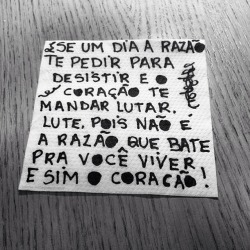 SE UM DIA A RAZÃO
TE PEDIR PARA
DESISTIR E O
CORAÇÃO TE
MANDAR LUTAR,
LUTE, POIS NÃO É
A RAZÃO QUE BATE
PRA VOCÊ VIVER
E SIM O CORAÇÃO!